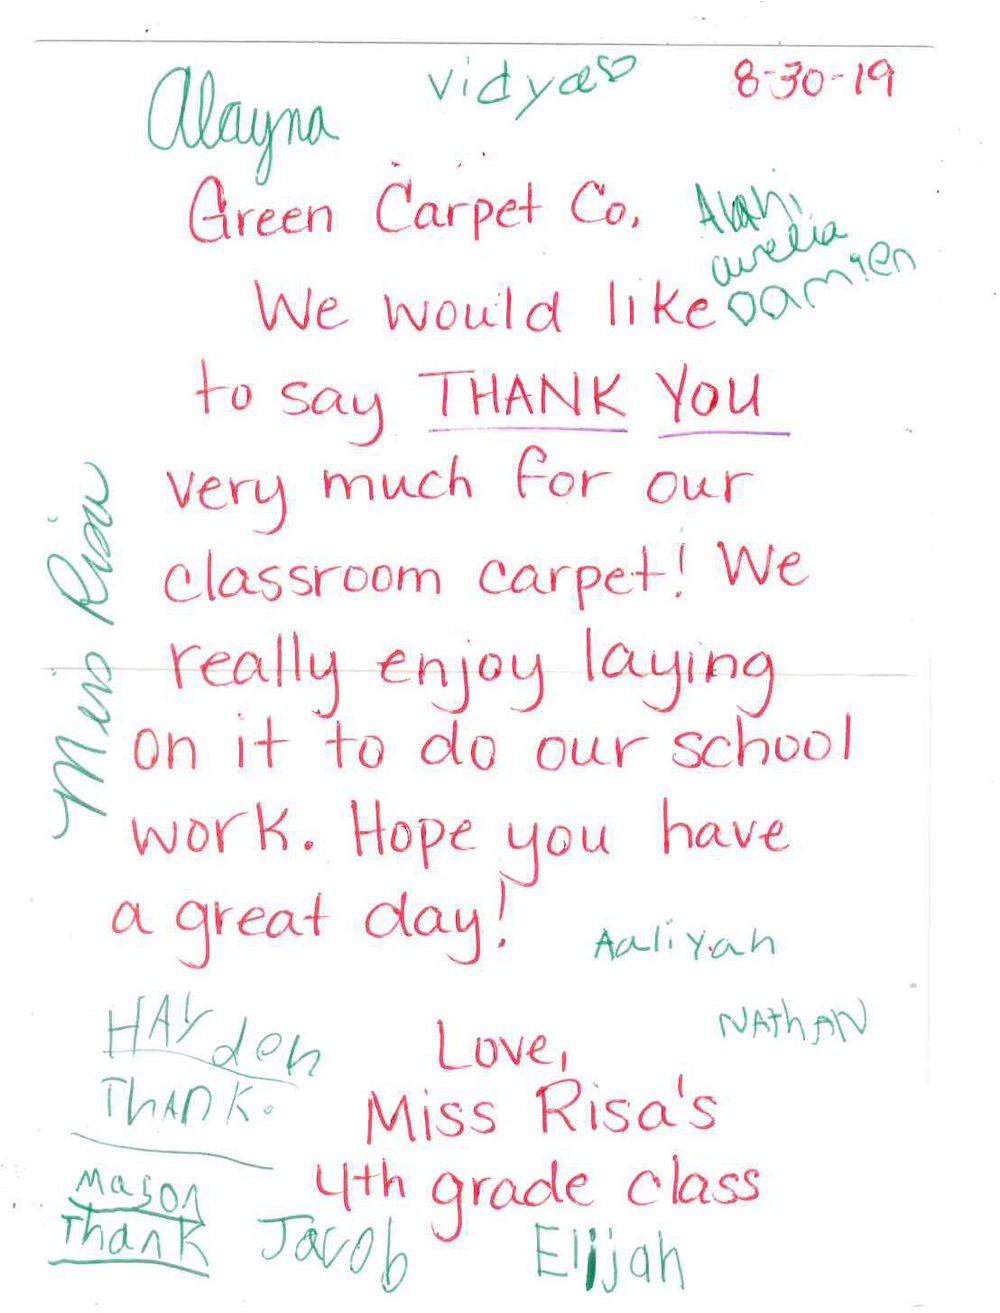 Alayna
vidya
8-30-19
Green Carpet Co,
aurelia
Damien
We would like
to say THANK YOU
very much for our
classroom carpet! We
really enjoy laying
on it to do our school
work. Hope you have
a great day!
Miss Risa
Aaliyah
NAthAN
HAYden
ThANK.
Love,
Miss Risa's
4th grade class
Mason
Thank
Jacob
Elijah